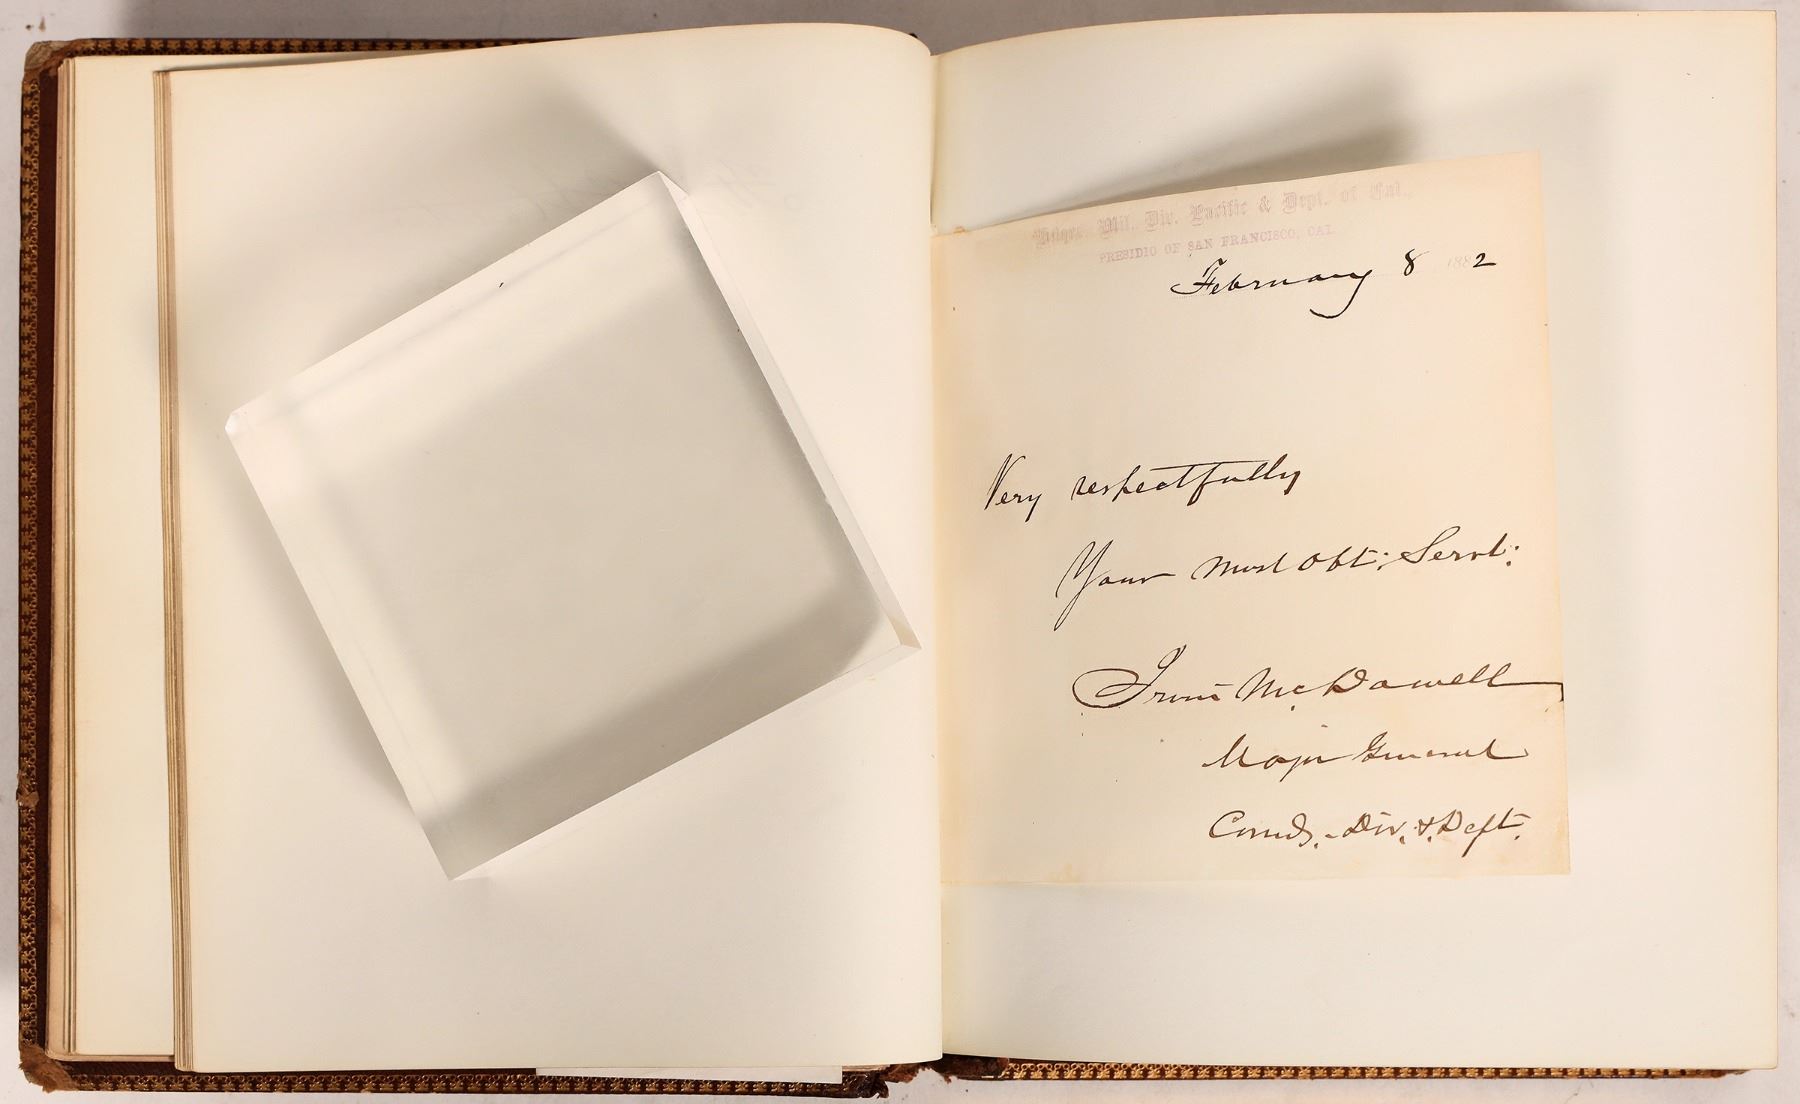 Hdqrs. Mil. Div. Pacific & Dept. of Cal.,
PRESIDIO OF SAN FRANCISCO, CAL
February 8 1882
Very respectfully
Your most obt: Servt:
Irvin McDowell
Major General
Comdg. Div. & Dept.